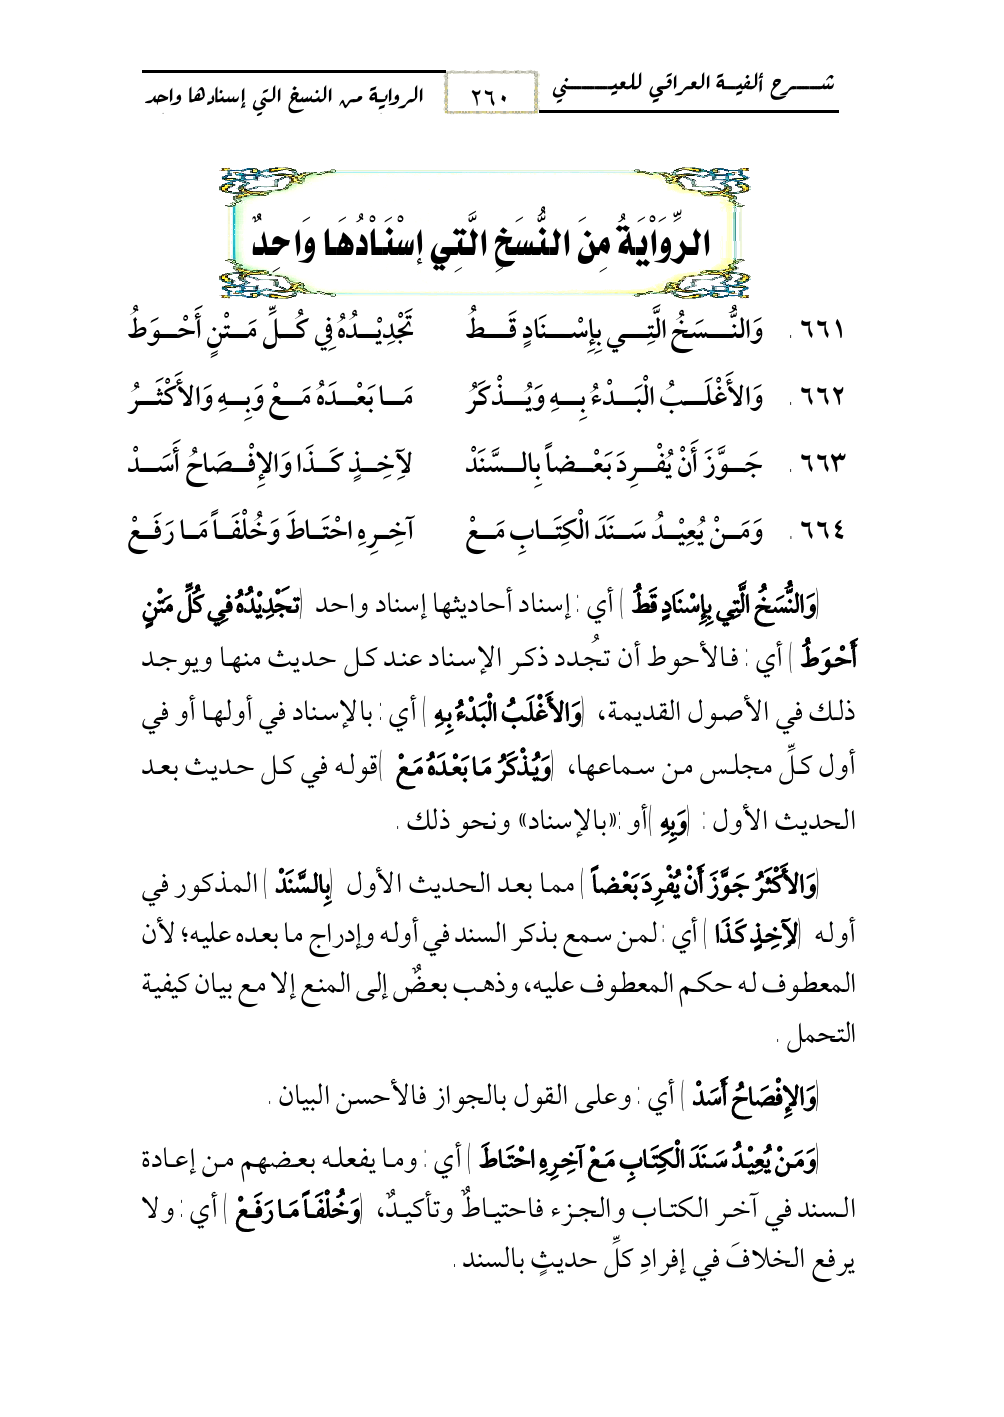 شـــرح ألفيـة العراقي للعينـــي
٢٦٠
الرواية من النسخ التي إسنادها واحد
الرِّوَاْيَةُ مِنَ النُّسَخِ الَّتِي إسْنَاْدُهَا وَاحِدٌ
٦٦١. وَالنُّسَخُ الَّتِي بِإِسْنَادٍ قَطُ تَجْدِيْدُهُ فِي كُلِّ مَتْنٍ أَحْوَطُ
٦٦٢. وَالأَغْلَبُ الْبَدْءُ بِهِ وَيُذْكَرُ مَا بَعْدَهُ مَعْ وَبِهِ وَالأَكْثَرُ
٦٦٣. جَوَّزَ أَنْ يُفْرِدَ بَعْضاً بِالسَّنَدْ لآِخِذٍ كَذَا وَالإِفْصَاحُ أَسَدْ
٦٦٤. وَمَنْ يُعِيْدُ سَنَدَ الْكِتَابِ مَعْ آخِرِهِ احْتَاطَ وَخُلْفَاً مَا رَفَعْ
(وَالنُّسَخُ الَّتِي بِإِسْنَادٍ قَطُ) أي : إسناد أحاديثها إسناد واحد (تَجْدِيْدُهُ فِي كُلِّ مَتْنٍ
أَحْوَطُ) أي : فالأحوط أن تجُدد ذكر الإسناد عند كل حديث منها ويوجد
ذلك في الأصول القديمة، (وَالأَغْلَبُ الْبَدْءُ بِهِ) أي : بالإسناد في أولها أو في
أول كلِّ مجلس من سماعها، (وَيُذْكَرُ مَا بَعْدَهُ مَعْ) قوله في كل حديث بعد
الحديث الأول : (وَبِهِ) أو :«بالإسناد» ونحو ذلك .
(وَالأَكْثَرُ جَوَّزَ أَنْ يُفْرِدَ بَعْضاً) مما بعد الحديث الأول (بِالسَّنَدْ) المذكور في
أوله (لآِخِذٍ كَذَا) أي : لمن سمع بذكر السند في أوله وإدراج ما بعده عليه؛ لأن
المعطوف له حكم المعطوف عليه، وذهب بعضٌ إلى المنع إلا مع بيان كيفية
التحمل .
(وَالإِفْصَاحُ أَسَدْ) أي : وعلى القول بالجواز فالأحسن البيان .
(وَمَنْ يُعِيْدُ سَنَدَ الْكِتَابِ مَعْ آخِرِهِ احْتَاطَ) أي : وما يفعله بعضهم من إعادة
السند في آخر الكتاب والجزء فاحتياطٌ وتأكيدٌ، (وَخُلْفَاً مَا رَفَعْ) أي : ولا
يرفع الخلافَ في إفرادِ كلِّ حديثٍ بالسند .